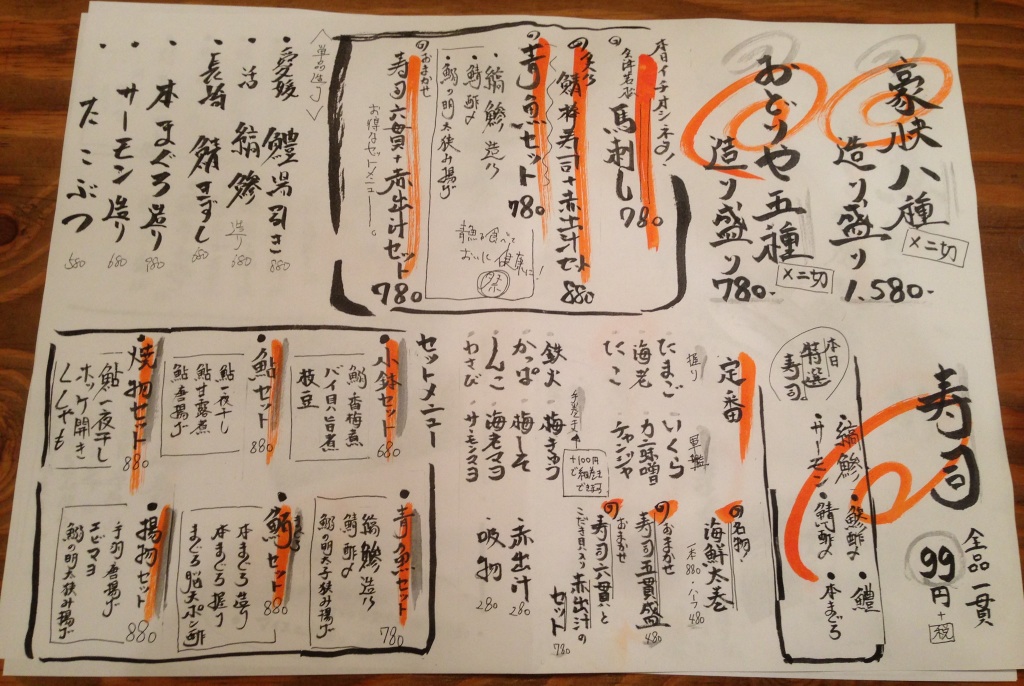 豪快八種
造り盛り
メニ切
1.580.
おどりや五種
造り盛り
メニ切
780.
本日イチオシネタ!
馬刺し 780
鯖棒寿司+赤土汁セット 880
青魚セット 780
・縞鯵造り
・鯖酢〆
・鰯の明太挟み揚げ
青魚を食べて
おいに健康に!
祭
おまかせ
寿司六貫+赤出汁セット 780
お得なセットメニュー。
〈単品造り〉
・愛媛 鱧湯引き 880
・活 縞鯵 造り 680
・長崎 鯖きずし 680
・本まぐろ造り 980
・サーモン造り 680
・たこぶつ 580
寿司
全品 一貫
99円+税
本日
特選
寿司
・縞鯵 ・鯵酢〆 ・鱧
・サーモン ・鯖酢〆 ・本まぐろ
定番
握り 軍艦
たまご いくら
海老 カニ味噌
たこ チャンジャ
手巻き
+100円
で細巻も
できます
鉄火 梅きゅう
かっぱ 梅しそ
しんこ 海老マヨ
わさび サーモンマヨ
名物!
海鮮太巻
一本880 ハーフ480
おまかせ
寿司五貫盛 480
おまかせ
寿司六貫と
こだき貝入り赤出汁の
セット 780
赤出汁 280
吸物 280
セットメニュー
・小鉢セット 680
鰯香梅煮
バイ貝旨煮
枝豆
・鮎セット 880
鮎一夜干し
鮎甘露煮
鮎唐揚げ
・焼物セット 880
鮎一夜干し
ホッケ開き
ししゃも
・青の魚セット 780
縞鯵造り
鯖酢〆
鰯の明太子挟み揚げ
・鮪セット 880
本まぐろ造り
本まぐろ握り
まぐろ脳天ポン酢
・揚物セット 880
手羽唐揚げ
エビマヨ
鰯の明太挟み揚げ